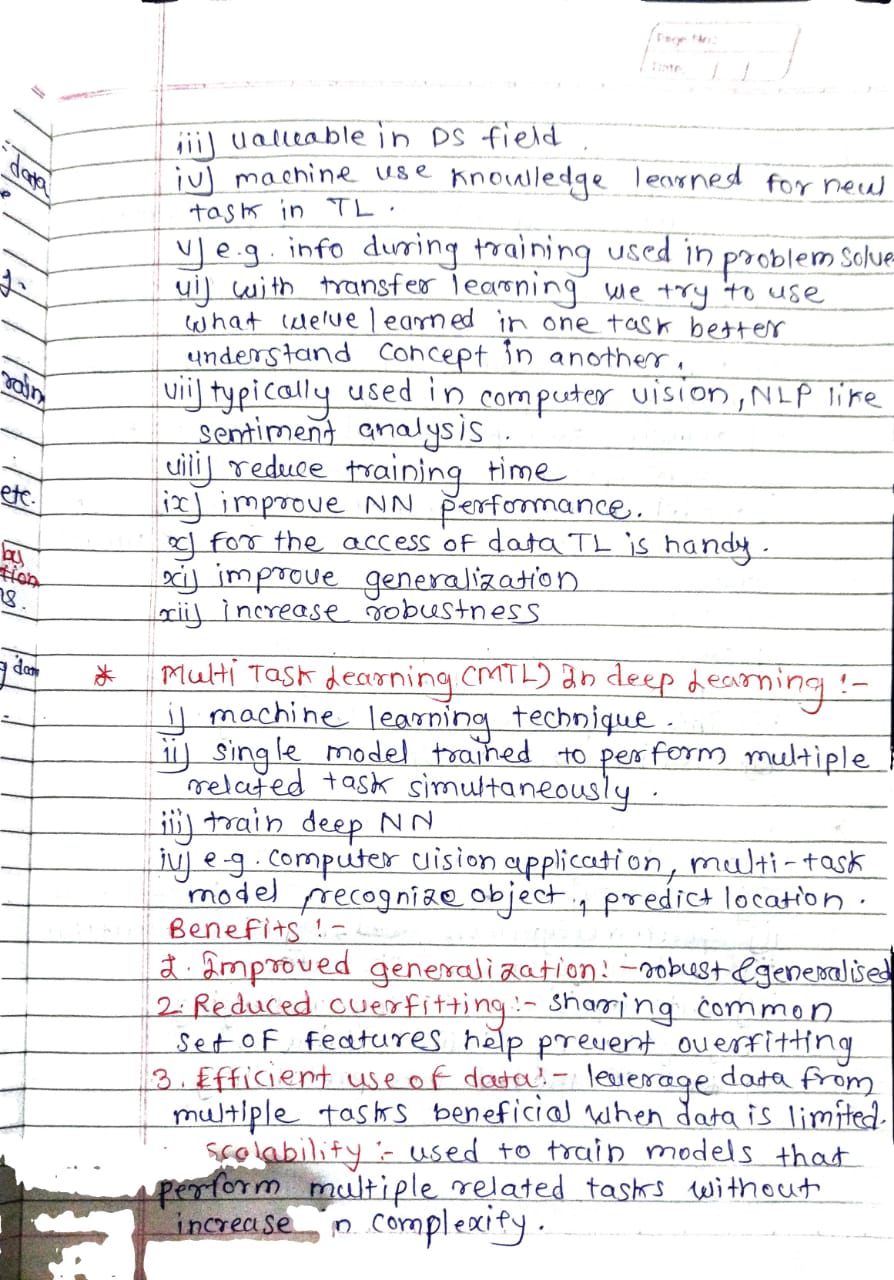 Page No:
Date: / /
iii) valueable in DS field.
iv) machine use knowledge learned for new
task in TL.
v) e.g. info during training used in problem solve
vi) with transfer learning we try to use
what we've learned in one task better
understand concept in another.
vii) typically used in computer vision, NLP like
sentiment analysis.
viii) reduce training time
ix) improve NN performance.
x) for the access of data TL is handy.
xi) improve generalization
xii) increase robustness
* Multi Task Learning (MTL) In deep Learning :-
i) machine learning technique.
ii) single model trained to perform multiple
related task simultaneously.
iii) train deep NN
iv) e.g. computer vision application, multi-task
model recognize object, predict location.
Benefits :-
1. Improved generalization: - robust & generalised
2. Reduced overfitting :- sharing common
set of features help prevent overfitting
3. Efficient use of data :- leverage data from
multiple tasks beneficial when data is limited.
scalability :- used to train models that
perform multiple related tasks without
increase in complexity.
data
etc.
by
tion